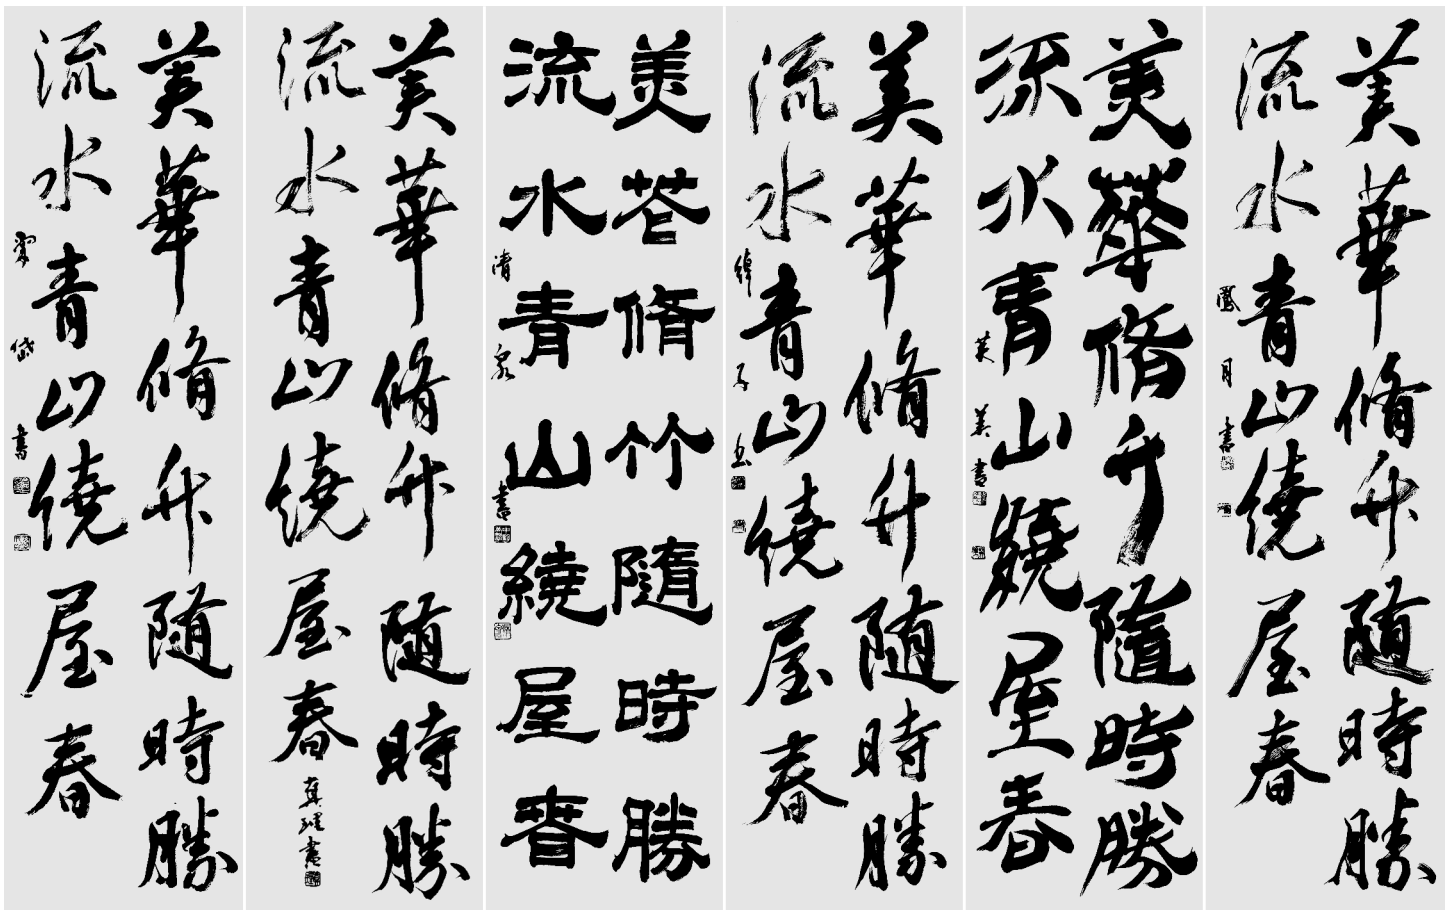 美華脩竹随時勝
流水青山繞屋春
鳳月書
美華脩竹隨時勝
流水青山繞屋春
英美書
美華脩竹随時勝
流水青山繞屋春
子
美花脩竹隨時勝
流水青山繞屋春
清泉書
美華脩竹随時勝
流水青山繞屋春
書
美華脩竹随時勝
流水青山繞屋春
岱書